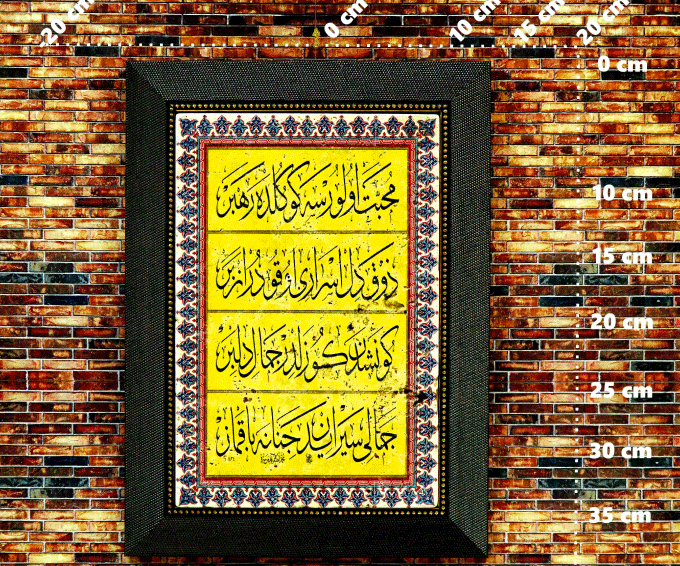 20 cm
0 cm
10 cm
15 cm
20 cm
0 cm
10 cm
15 cm
20 cm
25 cm
30 cm
35 cm
محبت اولورسه كوكلده رهبر
ذوق دل اسراری اوقودر ازبر
كونشدن كوزلدر جمال دلبر
جمالی سیر ایدن جنانه باقماز